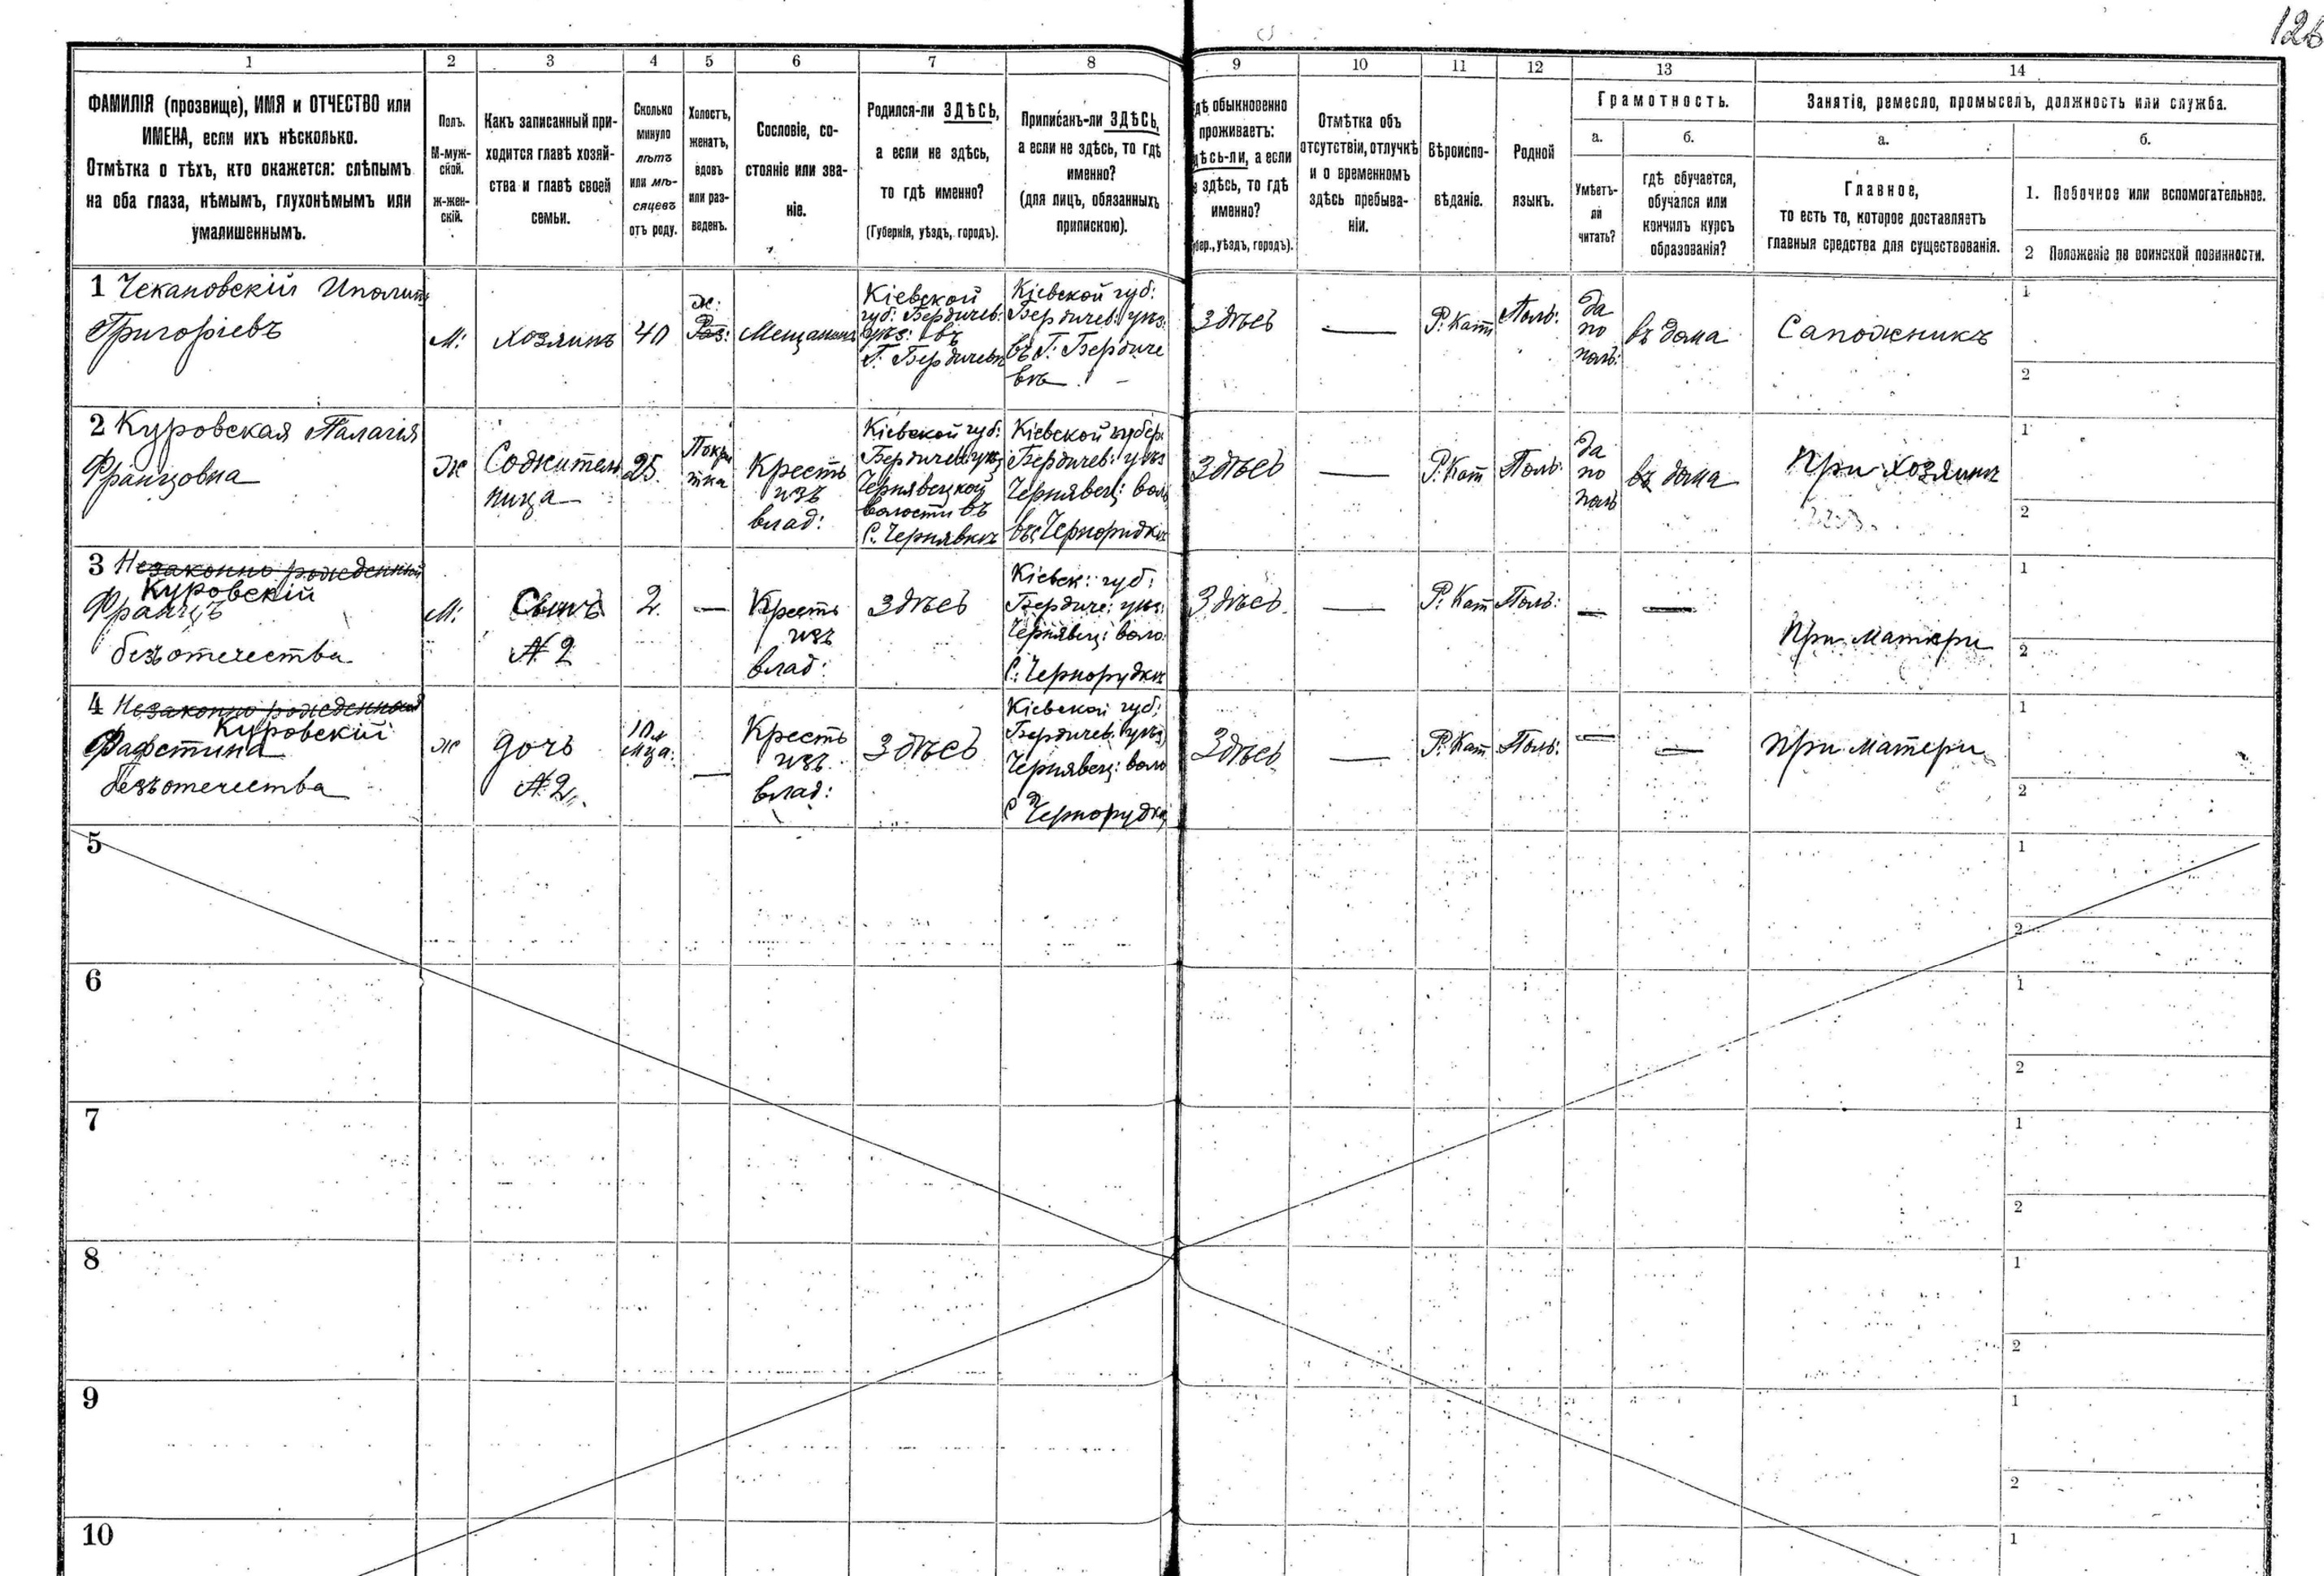 128
1 2 3 4 5 6 7 8 9 10 11 12 13 14
ФАМИЛІЯ (прозвище), ИМЯ и ОТЧЕСТВО или
ИМЕНА, если ихъ нѣсколько.
Отмѣтка о тѣхъ, кто окажется: слѣпымъ
на оба глаза, нѣмымъ, глухонѣмымъ или
умалишеннымъ.
Полъ.
М-муж-
ской.
ж-жен-
скій.
Какъ записанный при-
ходится главѣ хозяй-
ства и главѣ своей
семьи.
Сколько
минуло
лѣтъ
или мѣ-
сяцевъ
отъ роду.
Холостъ,
женатъ,
вдовъ
или раз-
веденъ.
Сословіе, со-
стояніе или зва-
ніе.
Родился-ли ЗДѢСЬ,
а если не здѣсь,
то гдѣ именно?
(Губернія, уѣздъ, городъ).
Приписанъ-ли ЗДѢСЬ,
а если не здѣсь, то гдѣ
именно?
(для лицъ, обязанныхъ
припискою).
дѣ обыкновенно
проживаетъ:
дѣсь-ли, а если
е здѣсь, то гдѣ
именно?
бер., уѣздъ, городъ).
Отмѣтка объ
отсутствіи, отлучкѣ
и о временномъ
здѣсь пребыва-
ніи.
Вѣроиспо-
вѣданіе.
Родной
языкъ.
Грамотность.
а.
Умѣетъ-
ли
читать?
б.
гдѣ обучается,
обучался или
кончилъ курсъ
образованія?
Занятіе, ремесло, промыселъ, должность или служба.
а.
Главное,
то есть то, которое доставляетъ
главныя средства для существованія.
б.
1. Побочное или вспомогательное.
2 Положеніе по воинской повинности.
1 Чекановскій Иполит
Григоріевъ
М:
хозяинъ
40
ж:
Раз:
Мещанинъ
Кіевской
губ: Бердичев:
уѣз: въ
Г. Бердичевѣ
Кіевской губ:
Бердичев: уѣз:
въ Г: Бердиче
вѣ
Здѣсь
Р: Кат
Поль:
Да
по
поль:
въ дома
Сапожникъ
1
2
2 Куровская Палагія
Францовна
Ж
Сожитель
ница
25.
Покры
тка
Кресть
изъ
влад:
Кіевской губ:
Бердичев: уѣз
Чернявецкой
волости въ
С: Чернявкѣ
Кіевской губер:
Бердичев: уѣз
Чернявец: вол
въ С Чернорудкѣ
Здѣсь
Р: Кат
Поль:
Да
по
поль
въ дома
При хозяинѣ
1
2
3 Незаконно рожденный
Куровскій
Францъ
безъ отчества
М:
Сынъ
№ 2
2.
Кресть
изъ
влад:
Здѣсь
Кіевск: губ:
Бердиче: уѣз:
Чернявец: воло:
С: Чернорудкѣ
Здѣсь
Р: Кат
Поль:
При матери
1
2
4 Незаконно рожденная
Куровскій
Фафстина
безъ отчества
ж
дочь
№ 2
10
мца:
Кресть
изъ
влад:
Здѣсь
Кіевской губ:
Бердичев: уѣз
Чернявец: воло
С Чернорудкѣ
Здѣсь
Р: Кат
Поль:
При матери
1
2
5
1
2
6
1
2
7
1
2
8
1
2
9
1
2
10
1